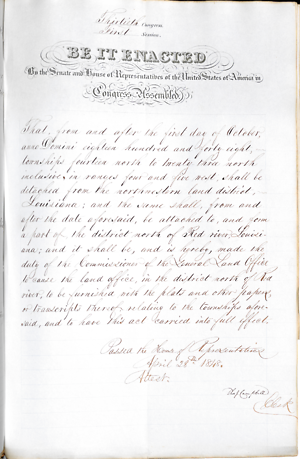 Thirtieth Congress
First Session.
BE IT ENACTED
By the Senate and House of Representatives of the United States of America in
Congress Assembled
That, from and after the first day of October,
anno Domini eighteen hundred and forty eight,
townships fourteen north to twenty three north
inclusive, in ranges four and five west, shall be
detached from the northwestern land district,
Louisiana; and the same shall, from and
after the date aforesaid, be attached to, and form
a part of the district north of Red river, Louisi-
ana; and it shall be, and is hereby, made the
duty of the Commissioner of the General Land Office
to cause the land office, in the district north of Red
river, to be furnished with the plats and other papers
or transcripts thereof, relating to the townships afore-
said, and to have this act carried into full effect.
Passed the House of Representatives
April 28th 1848.
Attest.
Th. J. Campbell
Clerk